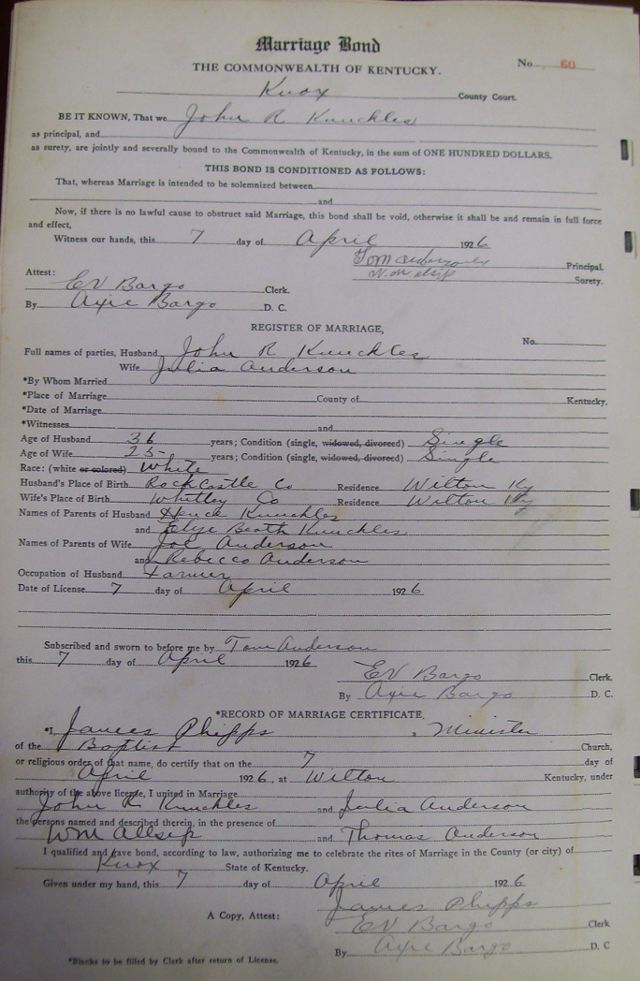 Marriage Bond
No. 60
THE COMMONWEALTH OF KENTUCKY.
Knox County Court.
BE IT KNOWN, That we John R Knuckles
as principal, and
as surety, are jointly and severally bound to the Commonwealth of Kentucky, in the sum of ONE HUNDRED DOLLARS.
THIS BOND IS CONDITIONED AS FOLLOWS:
That, whereas Marriage is intended to be solemnized between
and
Now, if there is no lawful cause to obstruct said Marriage, this bond shall be void, otherwise it shall be and remain in full force
and effect,
Witness our hands, this 7 day of April 1926
Tom Principal,
Wm Surety.
Attest:
EV Bargo Clerk.
By Axie Bargo D. C.
REGISTER OF MARRIAGE,
No.
Full names of parties, Husband John R Knuckles
Wife Julia Anderson
*By Whom Married
*Place of Marriage County of Kentucky.
*Date of Marriage
*Witnesses and
Age of Husband 36 years; Condition (single, widowed, divorced) Single
Age of Wife 25 years; Condition (single, widowed, divorced) Single
Race: (white or colored) White
Husband's Place of Birth Rockcastle Co Residence Wilton Ky
Wife's Place of Birth Whitley Co Residence Wilton Ky
Names of Parents of Husband Knuckles
and Knuckles
Names of Parents of Wife Joe Anderson
and Rebecco Anderson
Occupation of Husband Farmer
Date of License 7 day of April 1926
Subscribed and sworn to before me by Tom Anderson
this 7 day of April 1926
EV Bargo Clerk.
By Axie Bargo D. C.
*RECORD OF MARRIAGE CERTIFICATE,
*I, James Phipps, Minister
of the Baptist Church,
or religious order of that name, do certify that on the 7 day of
April 1926, at Wilton Kentucky, under
authority of the above license, I united in Marriage
John R Knuckles and Julia Anderson
the persons named and described therein, in the presence of
Wm Allsip and Thomas Anderson
I qualified and gave bond, according to law, authorizing me to celebrate the rites of Marriage in the County (or city) of
Knox State of Kentucky.
Given under my hand, this 7 day of April 1926
James Phipps
A Copy, Attest: EV Bargo Clerk
By Axie Bargo D. C
*Blanks to be filled by Clerk after return of License.